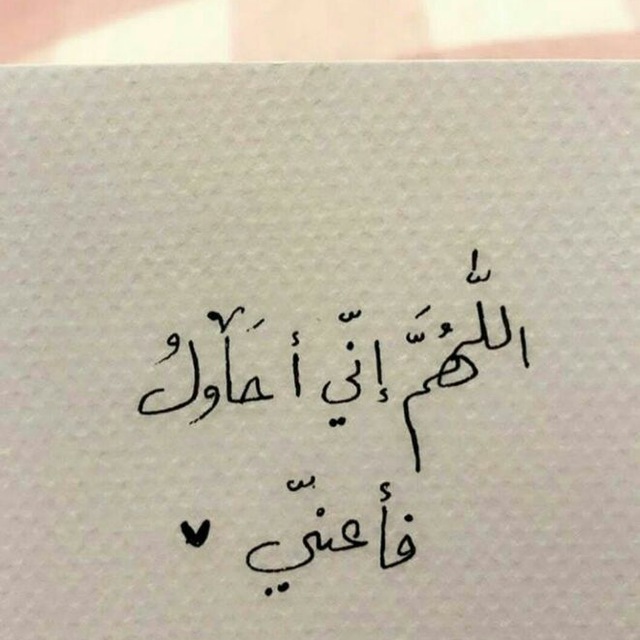 اللّٰهُمَّ إنّي أحَاولُ
فأعنّي ♥